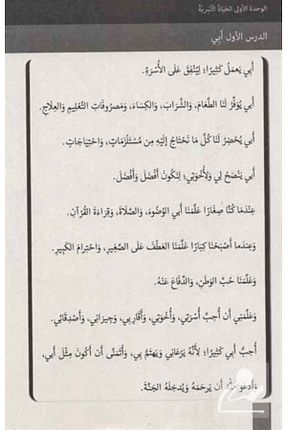 الوحدة الأولى الحياة الأسرية
الدرس الأول أبي
أَبي يَعمَلُ كَثيرًا؛ لِيُنْفِقَ عَلَى الأُسْرَةِ.
أَبي يُوَفِّرُ لَنَا الطَّعَامَ، وَالشَّرَابَ، وَالكِسَاءَ، وَمَصْرُوفَاتِ التَّعْلِيمِ وَالعِلَاجِ.
أَبي يُحْضِرُ لَنَا كُلَّ مَا نَحْتَاجُ إِلَيْهِ مِن مُسْتَلْزَمَاتٍ، وَاحْتِيَاجَاتٍ.
أَبي يَنْصَحُ لِي وَلِأُخْوَتِي؛ لِنَكُونَ أَفْضَلَ وَأَفْضَلَ.
عِنْدَمَا كُنَّا صِغَارًا عَلَّمَنَا أَبي الوُضُوءَ، وَالصَّلَاةَ، وَقِرَاءَةَ القُرْآنِ.
وَعِندَما أَصْبَحْنَا كِبَارًا عَلَّمَنَا العَطْفَ عَلَى الصَّغِيرِ، وَاحْتِرَامَ الكَبِيرِ.
وَعَلَّمَنَا حُبَّ الوَطَنِ، وَالدِّفَاعَ عَنْهُ.
وَعَلَّمَنِي أَن أُحِبَّ أُسْرَتِي، وَأُخْوَتِي، وَأَقَارِبِي، وَجِيرَانِي، وَأَصْدِقَائِي.
أُحِبُّ أَبي كَثِيرًا؛ لِأَنَّهُ يَرْعَانِي وَيَهتَمُّ بِي، وَأَتَمَنَّى أَن أَكُونَ مِثْلَ أَبي،
وَأَدعو اللهَ أَن يَرحَمَهُ وَيُدخِلَهُ الجَنَّةَ.